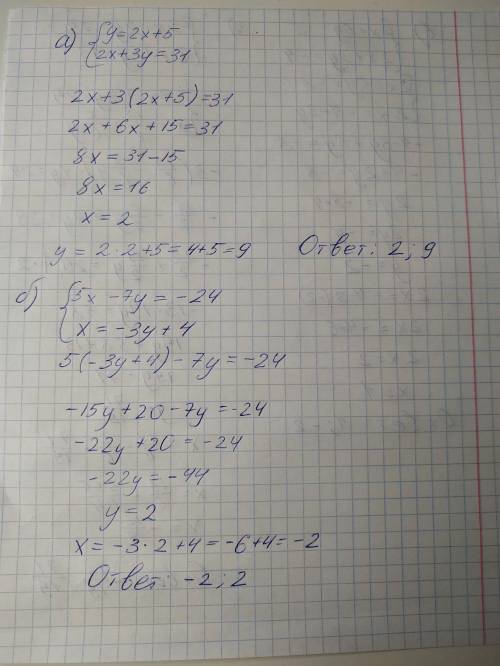 а) {y=2x+5
2x+3y=31
2x+3(2x+5)=31
2x+6x+15=31
8x=31-15
8x=16
x=2
y=2·2+5=4+5=9 Ответ: 2; 9
б) {5x-7y=-24
x=-3y+4
5(-3y+4)-7y=-24
-15y+20-7y=-24
-22y+20=-24
-22y=-44
y=2
x=-3·2+4=-6+4=-2
Ответ: -2; 2